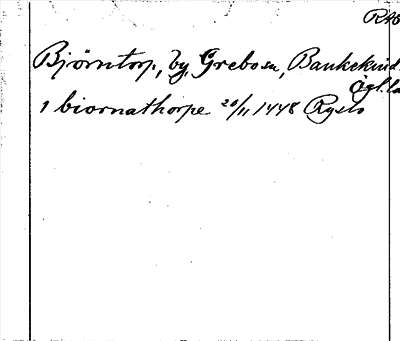 Björntorp, by, Grebo sn, Bankekind
Ögl. la
1 biornathorpe 20/11 1448 Ryseb